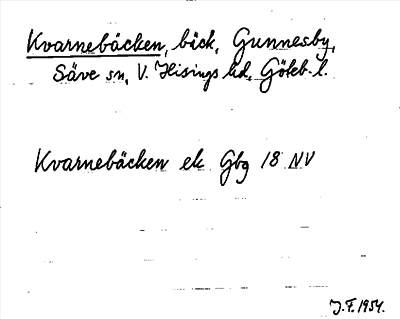 Kvarnebäcken, bäck, Gunnesby,
Säve sn, V. Hisings hd, Göteb. l.
Kvarnebäcken ek Gbg 18 NV
J.F. 1954.